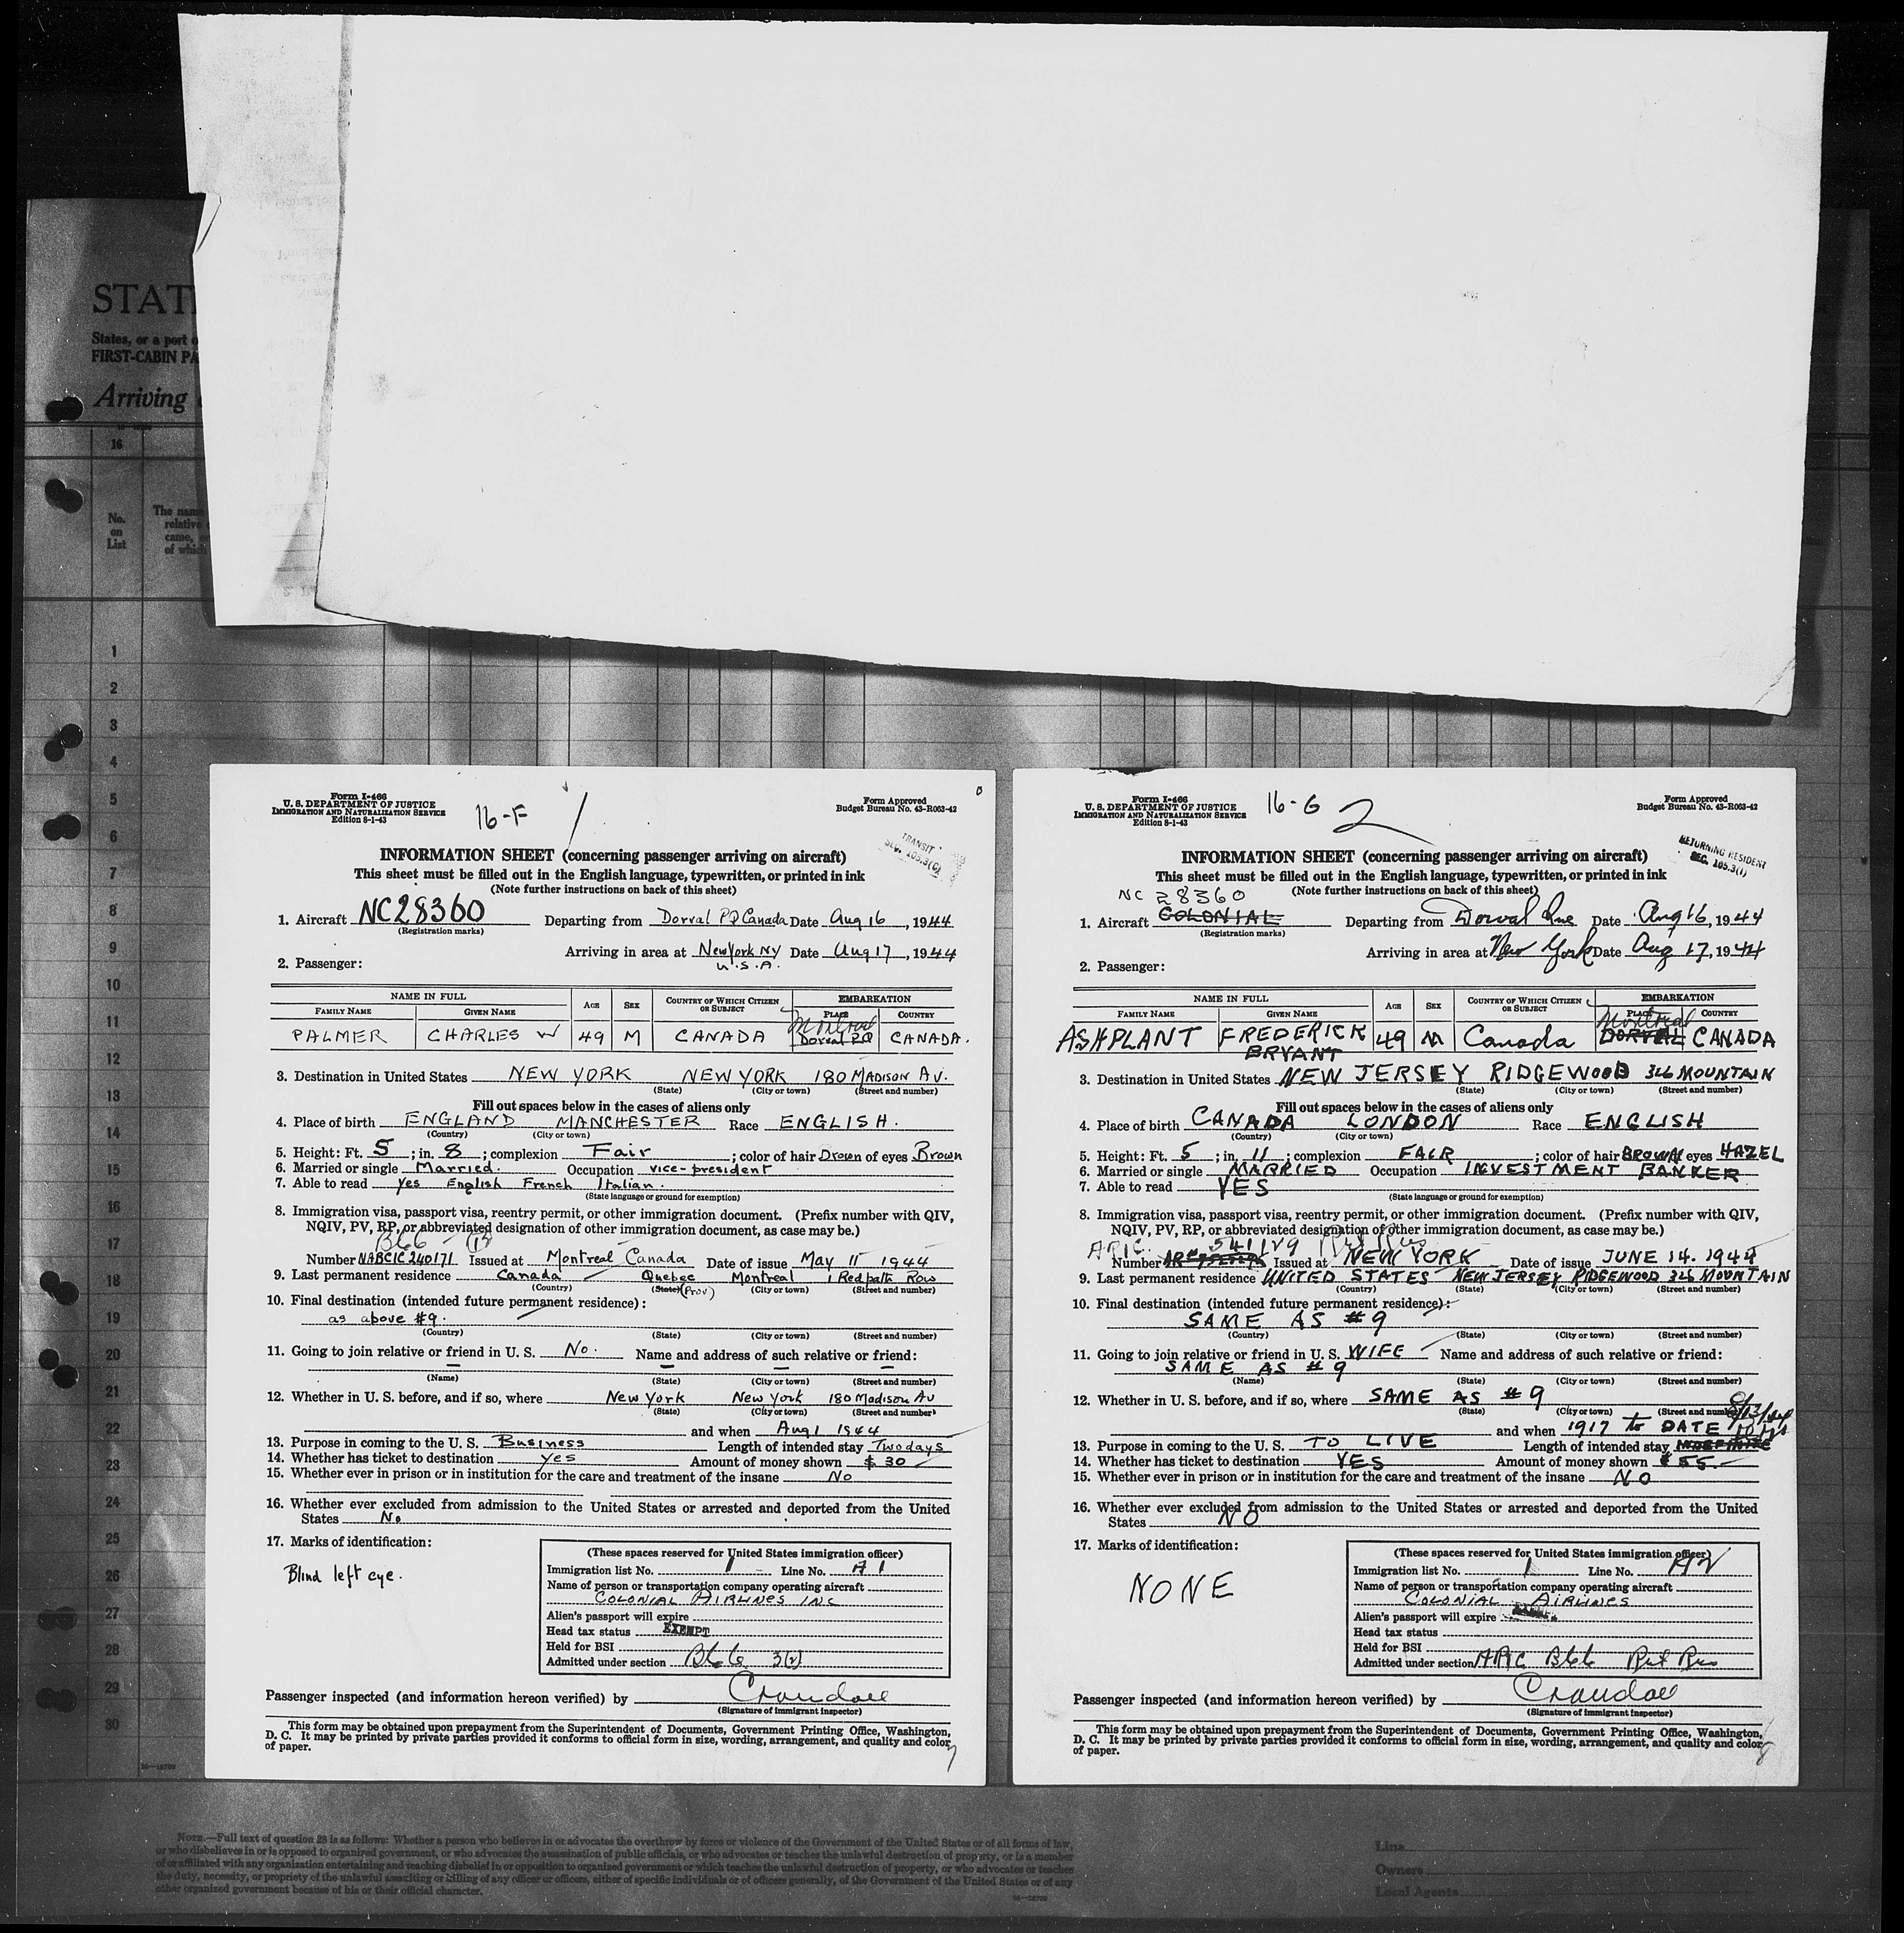 STAT
States, or a port o
FIRST-CABIN PA
Arriving
16
No.
on
List
The name
relative
came,
of which
1
2
3
4
5
6
7
8
9
10
11
12
13
14
15
16
17
18
19
20
21
22
23
24
25
26
27
28
29
30
Form I-466
U. S. DEPARTMENT OF JUSTICE
IMMIGRATION AND NATURALIZATION SERVICE
Edition 8-1-43
16-F 1
Form Approved
Budget Bureau No. 43-R063-42
TRANSIT
SEC. 105.3(C)
INFORMATION SHEET (concerning passenger arriving on aircraft)
This sheet must be filled out in the English language, typewritten, or printed in ink
(Note further instructions on back of this sheet)
1. Aircraft NC28360 Departing from Dorval PQ Canada Date Aug 16, 1944
(Registration marks)
Arriving in area at New York NY Date Aug 17, 1944
U.S.A.
2. Passenger:
NAME IN FULL AGE SEX COUNTRY OF WHICH CITIZEN OR SUBJECT EMBARKATION
FAMILY NAME GIVEN NAME PLACE COUNTRY
Montreal
PALMER CHARLES W 49 M CANADA Dorval PQ CANADA.
3. Destination in United States NEW YORK NEW YORK 180 MADISON AV.
(State) (City or town) (Street and number)
Fill out spaces below in the cases of aliens only
4. Place of birth ENGLAND MANCHESTER Race ENGLISH.
(Country) (City or town)
5. Height: Ft. 5; in. 8; complexion Fair; color of hair Brown of eyes Brown
6. Married or single Married. Occupation vice-president
7. Able to read Yes English French Italian.
(State language or ground for exemption)
8. Immigration visa, passport visa, reentry permit, or other immigration document. (Prefix number with QIV,
NQIV, PV, RP, or abbreviated designation of other immigration document, as case may be.)
B66
Number NABCIC 240171 Issued at Montreal Canada Date of issue May 11 1944
9. Last permanent residence Canada Quebec Montreal 1 Redpath Row
(Country) (State) (Prov) (City or town) (Street and number)
10. Final destination (intended future permanent residence):
as above #9.
(Country) (State) (City or town) (Street and number)
11. Going to join relative or friend in U. S. No. Name and address of such relative or friend:
(Name) (State) (City or town) (Street and number)
12. Whether in U. S. before, and if so, where New York New York 180 Madison Av
(State) (City or town) (Street and number)
and when Aug 1 1944
13. Purpose in coming to the U. S. Business Length of intended stay Two days
14. Whether has ticket to destination yes Amount of money shown $30
15. Whether ever in prison or in institution for the care and treatment of the insane No
16. Whether ever excluded from admission to the United States or arrested and deported from the United
States No
17. Marks of identification:
Blind left eye.
(These spaces reserved for United States immigration officer)
Immigration list No. 1 Line No. A 1
Name of person or transportation company operating aircraft
COLONIAL AIRLINES INC
Alien's passport will expire
Head tax status EXEMPT
Held for BSI
Admitted under section B66 3(2)
Passenger inspected (and information hereon verified) by Crandall
(Signature of immigrant inspector)
This form may be obtained upon prepayment from the Superintendent of Documents, Government Printing Office, Washington,
D. C. It may be printed by private parties provided it conforms to official form in size, wording, arrangement, and quality and color
of paper.
7
Form I-466
U. S. DEPARTMENT OF JUSTICE
IMMIGRATION AND NATURALIZATION SERVICE
Edition 8-1-43
16-G 2
Form Approved
Budget Bureau No. 43-R063-42
RETURNING RESIDENT
SEC. 105.3(1)
INFORMATION SHEET (concerning passenger arriving on aircraft)
This sheet must be filled out in the English language, typewritten, or printed in ink
(Note further instructions on back of this sheet)
NC 28360
1. Aircraft COLONIAL Departing from Dorval Que Date Aug 16, 1944
(Registration marks)
Arriving in area at New York Date Aug 17, 1944
2. Passenger:
NAME IN FULL AGE SEX COUNTRY OF WHICH CITIZEN OR SUBJECT EMBARKATION
FAMILY NAME GIVEN NAME PLACE COUNTRY
Montreal
ASHPLANT FREDERICK 49 M Canada DORVAL CANADA
BRYANT
3. Destination in United States NEW JERSEY RIDGEWOOD 346 MOUNTAIN
(State) (City or town) (Street and number)
Fill out spaces below in the cases of aliens only
4. Place of birth CANADA LONDON Race ENGLISH
(Country) (City or town)
5. Height: Ft. 5; in. 11; complexion FAIR; color of hair BROWN eyes HAZEL
6. Married or single MARRIED Occupation INVESTMENT BANKER
7. Able to read YES
(State language or ground for exemption)
8. Immigration visa, passport visa, reentry permit, or other immigration document. (Prefix number with QIV,
NQIV, PV, RP, or abbreviated designation of other immigration document, as case may be.)
ARIC. 541129
Number Issued at NEW YORK Date of issue JUNE 14. 1944
9. Last permanent residence UNITED STATES NEW JERSEY RIDGEWOOD 346 MOUNTAIN
(Country) (State) (City or town) (Street and number)
10. Final destination (intended future permanent residence):
SAME AS #9
(Country) (State) (City or town) (Street and number)
11. Going to join relative or friend in U. S. WIFE Name and address of such relative or friend:
SAME AS #9
(Name) (State) (City or town) (Street and number)
12. Whether in U. S. before, and if so, where SAME AS #9
(State) (City or town) (Street and number)
8/13/44
and when 1917 to DATE
13. Purpose in coming to the U. S. TO LIVE Length of intended stay INDEFINITE
14. Whether has ticket to destination YES Amount of money shown $55.
15. Whether ever in prison or in institution for the care and treatment of the insane NO
16. Whether ever excluded from admission to the United States or arrested and deported from the United
States NO
17. Marks of identification:
NONE
(These spaces reserved for United States immigration officer)
Immigration list No. 1 Line No. A2
Name of person or transportation company operating aircraft
COLONIAL AIRLINES
Alien's passport will expire
Head tax status
Held for BSI
Admitted under section ARIC B66
Passenger inspected (and information hereon verified) by Crandall
(Signature of immigrant inspector)
This form may be obtained upon prepayment from the Superintendent of Documents, Government Printing Office, Washington,
D. C. It may be printed by private parties provided it conforms to official form in size, wording, arrangement, and quality and color
of paper.
8
NOTE.—Full text of question 23 is as follows: Whether a person who believes in or advocates the overthrow by force or violence of the Government of the United States or of all forms of law,
or who disbelieves in or is opposed to organized government, or who advocates the assassination of public officials, or who advocates or teaches the unlawful destruction of property, or is a member
of or affiliated with any organization entertaining and teaching disbelief in or opposition to organized government or which teaches the unlawful destruction of property, or who advocates or teaches
the duty, necessity, or propriety of the unlawful assaulting or killing of any officer or officers, either of specific individuals or of officers generally, of the Government of the United States or of any
other organized government because of his or their official character.
Line
Owners
Local Agents